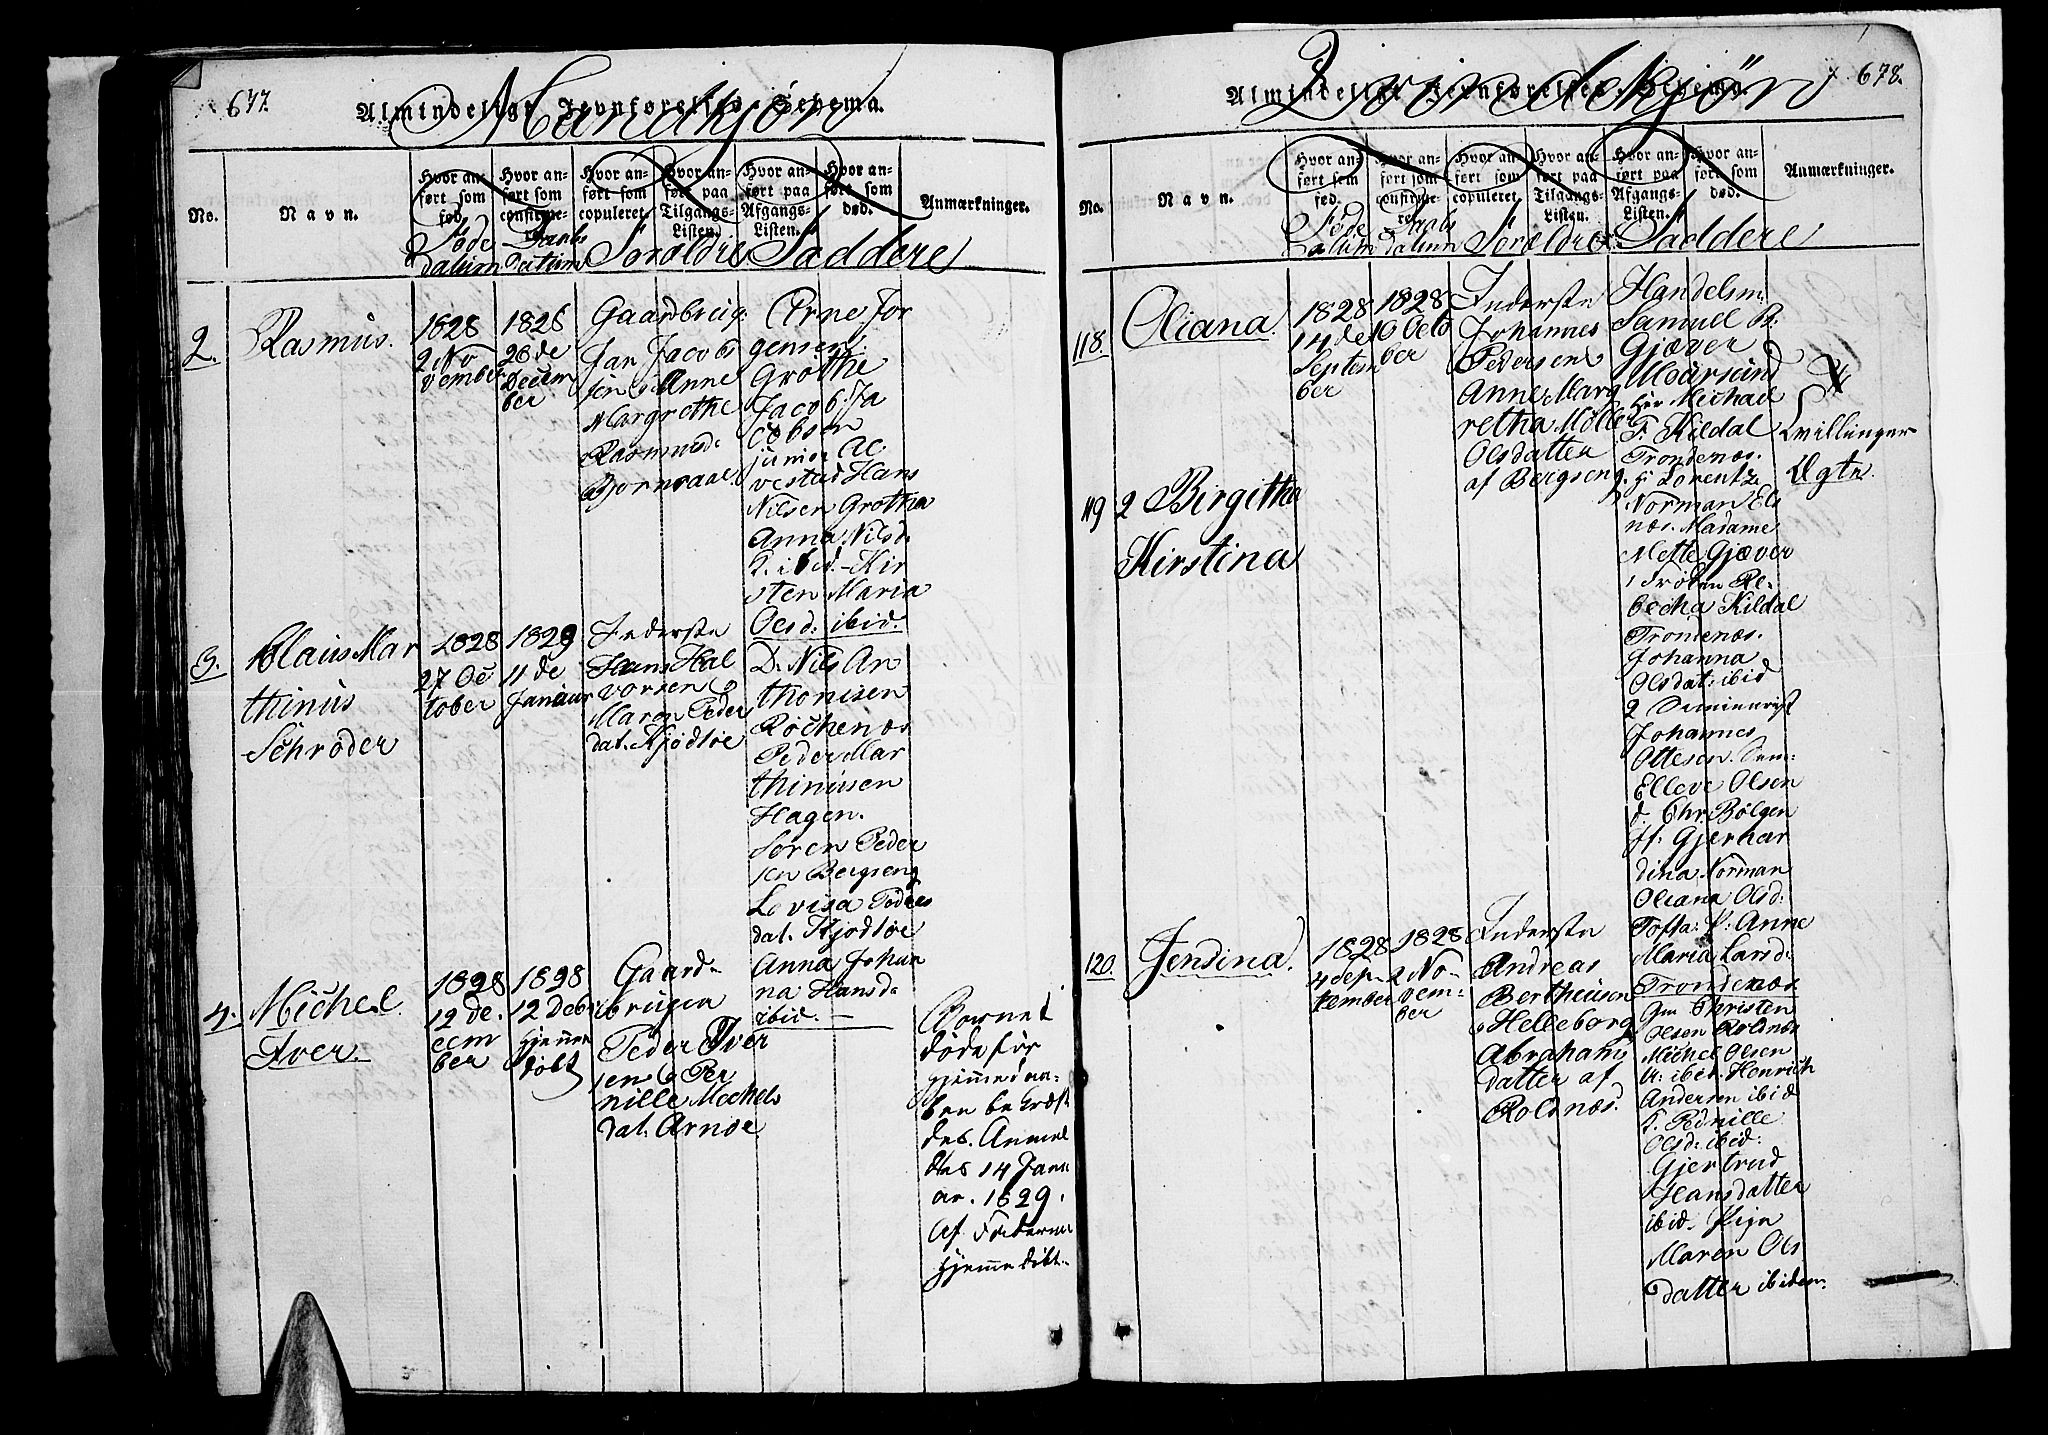 677.
Almindeligt Jevnførelses-Schema.
Mandkjön
No.
Navn.
Hvor anført som fød.
Hvor anført som confirmeret.
Hvor anført som copuleret.
Hvor anført paa Tilgangs-Listen.
Hvor anført paa Afgangs-Listen.
Hvor anført som død.
Anmærkninger.
Føde datum
Daabs Datum
Foraldre
Faddere
2.
Rasmus.
1828
2 No
vember
1828
28 de
Decem
ber
Gaardbrug.
Jan Jacob
sen & Anne
Margrethe
Rasmusd.
Bjornraae.
Arne Jor
gensen
Grothe
Jacob Ja
cobsen
junior Al
vestad Hans
Nilsen Grothe
Anna Nilsd.
K. ibid. Kir
sten Maria
Olsd: ibid.
3.
Claus Mar
thinus
Schrøder
1828
27 Oc
tober
1829
11 de
Januar
Inderste
Hans Hal
vorsen &
Maren Peder
dat. Kjødtøe
D. Nils An
thonisen
Rochenæs
Peder Mar
thinusen
Hagen.
Søren Peder
sen Bergseng
Lovisa Peders
dat. Kjødtøe
Anna Johan
na Hansd.
ibid.
4.
Michel
Iver.
1828
12 De.
cem
ber
1828
12 Debr
hjemme
døbt
Gaard-
brugen
Peder Iver
sen & Per
nille Michels
dat. Arnøe
Barnet
døde før
hjemmedaa-
ben bekræf
des. Anmel
dtes 14 Janu
ar. 1829.
Af Faderen
hjemmedøbt.
678.
Almindeligt Jevnførelses-Schema.
Qvindekjön
No.
Navn.
Hvor anført som fød.
Hvor anført som confirmeret.
Hvor anført som copuleret.
Hvor anført paa Tilgangs-Listen.
Hvor anført paa Afgangs-Listen.
Hvor anført som død.
Anmærkninger.
Føde Datum
Daabs datum
Forældre
Faddere
118.
Oliana
1828
14 de
Septem
ber
1828
10 Octo
ber
Inderste
Johannes
Pedersen &
Anne Marg
retha Mølle
Olsdatter
af Bergseng.
Handelsm.
Samuel R.
Gjæver
Maursund
Hr. Michael
F. Kildal
Trondenæs.
H. Lorentz
Norman Els
næs. Madame
Mette Gjæver
Frøken Re-
becha Kildal
Trondenæs.
Johanna
Olsdat: ibid
2 Seminarist
Johannes
Ottesen. Sem:
Elleve Olsen
d. Chr. Bölgen
Jf. Gjerhar
dina Norman
Oliana Olsd:
Tofta: P: Anne
Maria Larsd:
Trondenæs.
Tvillinger
Ugte.
119
2 Birgitha
Kirstina
120.
Jensina.
1828
4 Sep-
tember
1828
2 No-
vem-
ber
Inderste
Andreas
Bertheusen
& Helleborg
Abrahams
datter af
Roldnæs.
Gm Christen
Olsen Roldnæs
Michel Olsen
K: ibid. Henrich
Andersen ibid
K. Pednille
Olsd: ibid:
Gjertrud
Hansdatter
ibid. Pige
Maren Ols
datter ibidem.